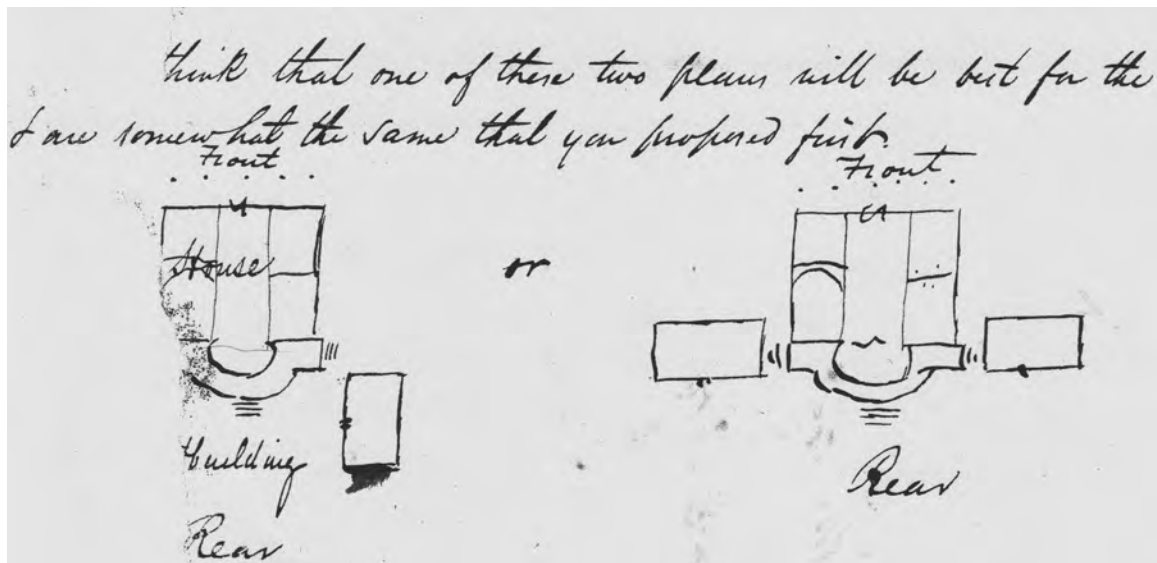 think that one of these two plans will be best for the
& are somewhat the same that you proposed first.
Front
Front
House
or
building
Rear
Rear